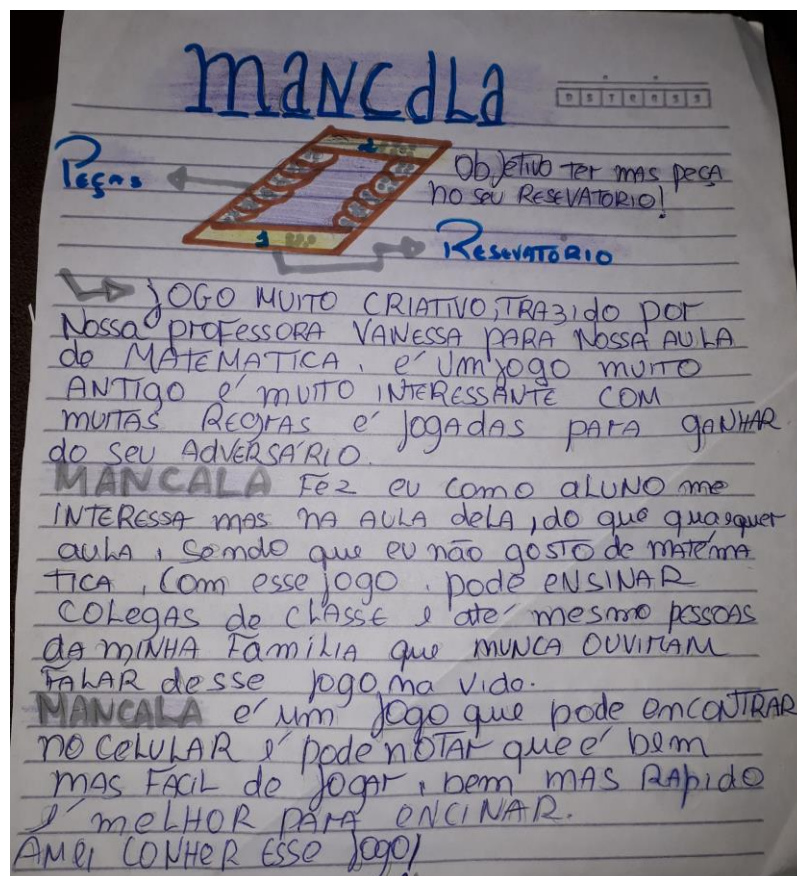 MANCALA
Peças
Objetivo ter mas peça
no seu RESEVATORIO!
1
RESEVATÓRIO
JOGO MUITO CRIATIVO, TRAZIDO por
Nossa professora VANESSA PARA NOSSA AULA
de MATEMATICA, é um jogo muito
ANTIGO é muito INTERESSANTE COM
muitas Regras é jogadas para gANHAR
do seu ADVERSÁRIO.
MANCALA Fez eu como aluno me
INTERESSA mas na AULA dela, do que quasquer
aula, sendo que eu não gosto de matéma
TICA, Com esse jogo, pode ENSINAR
COLegas de CLASSE e até mesmo pessoas
da minha Família que nunca OUVIRAM
FALAR desse jogo na vido.
MANCALA é um jogo que pode encontrar
no CELULAR é pode NOTAR que é bem
mas FACIL de jogar, bem mas RApido
é melhor para encinar.
Amei CONHER ESSE jogo!